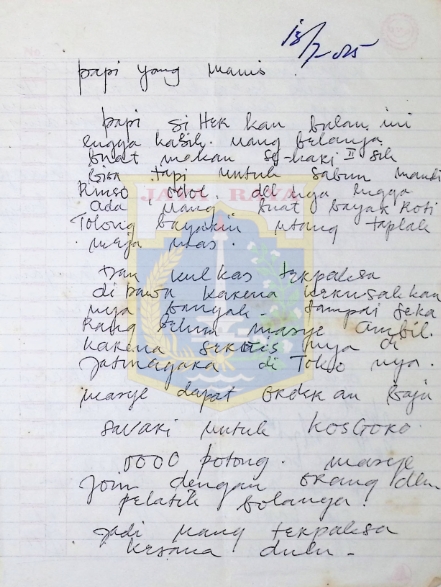 18/7-025
papi yang manis
papi si Hek kan bulan ini
engga kasih uang belanja
buat makan se-hari II sih
bisa tapi untuk sabun mandi
Rinso odol. dll nya engga
ada uang buat bayar Roti
Tolong bayarin utang taplak
meja mas.
JAYA RAYA
Dan kulkas terpaksa
di bawa karena kerusakkan
nya banyak. sampai seka
Rang belum masye ambil.
karena servis nya di
Jatinegara di Toko nya.
masye dapat orderan baju
savari untuk KOSGORO
5000 potong. masye
Join dengan orang dlm
pelatih bolanya.
Jadi uang terpaksa
kesana dulu.